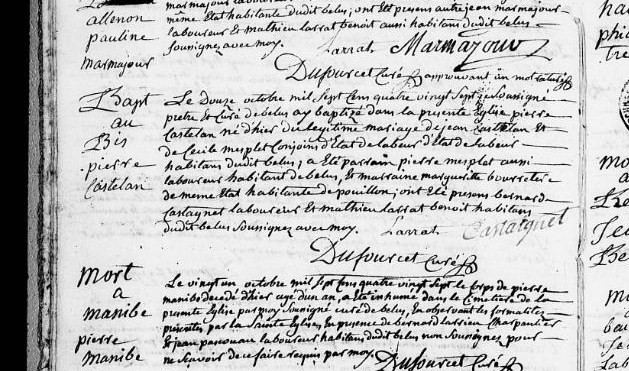 allenon
pauline
marmajour
marmajour laboureur
meme Etat habitante dudit belus, ont Eté presens autre jean marmajour
laboureur Et mathieu Larrat benoit aussi habitans dudit belus
Soussignes avec moy. Larrat Marmajour
Dufourcet Curé approuvant un mot
Bapt
au
Bis
pierre
Castelan
Le Douze octobre mil Sept Cens quatre vingt Sept je Soussigné
pretre Et Curé de belus ay baptizé dans la presente Eglise pierre
Castelan né d'hier du legitime mariage de jean Castelan Et
de Cecile mesplet Conjoins d'Etat de Labeur d'Etat de Labeur
habitans dudit belus; a Eté parrain pierre mesplet aussi
laboureur habitant de belus, Et marraine marguerite
de meme Etat habitante de pouillon; ont Eté presens bernard
Castagnet laboureur Et mathieu Larrat benoit habitans
dudit belus Soussignes avec moy. Larrat Castaignet
Dufourcet Curé
Mort
a
manibe
pierre
manibe
Le vingt un octobre mil Sept Cens quatre vingt Sept le Corps de pierre
manibe decedé d'hier agé d'un an, a Eté inhumé dans le Cimetiere de la
presente Eglise par moy Soussigné curé de belus, En observant les formalites
prescrites par la Sainte Eglise, En presence de bernard Charpentier
Et jean laboureur habitans dudit belus non Soussignes pour
ne Scavoir de ce faire requis par moy. Dufourcet Curé